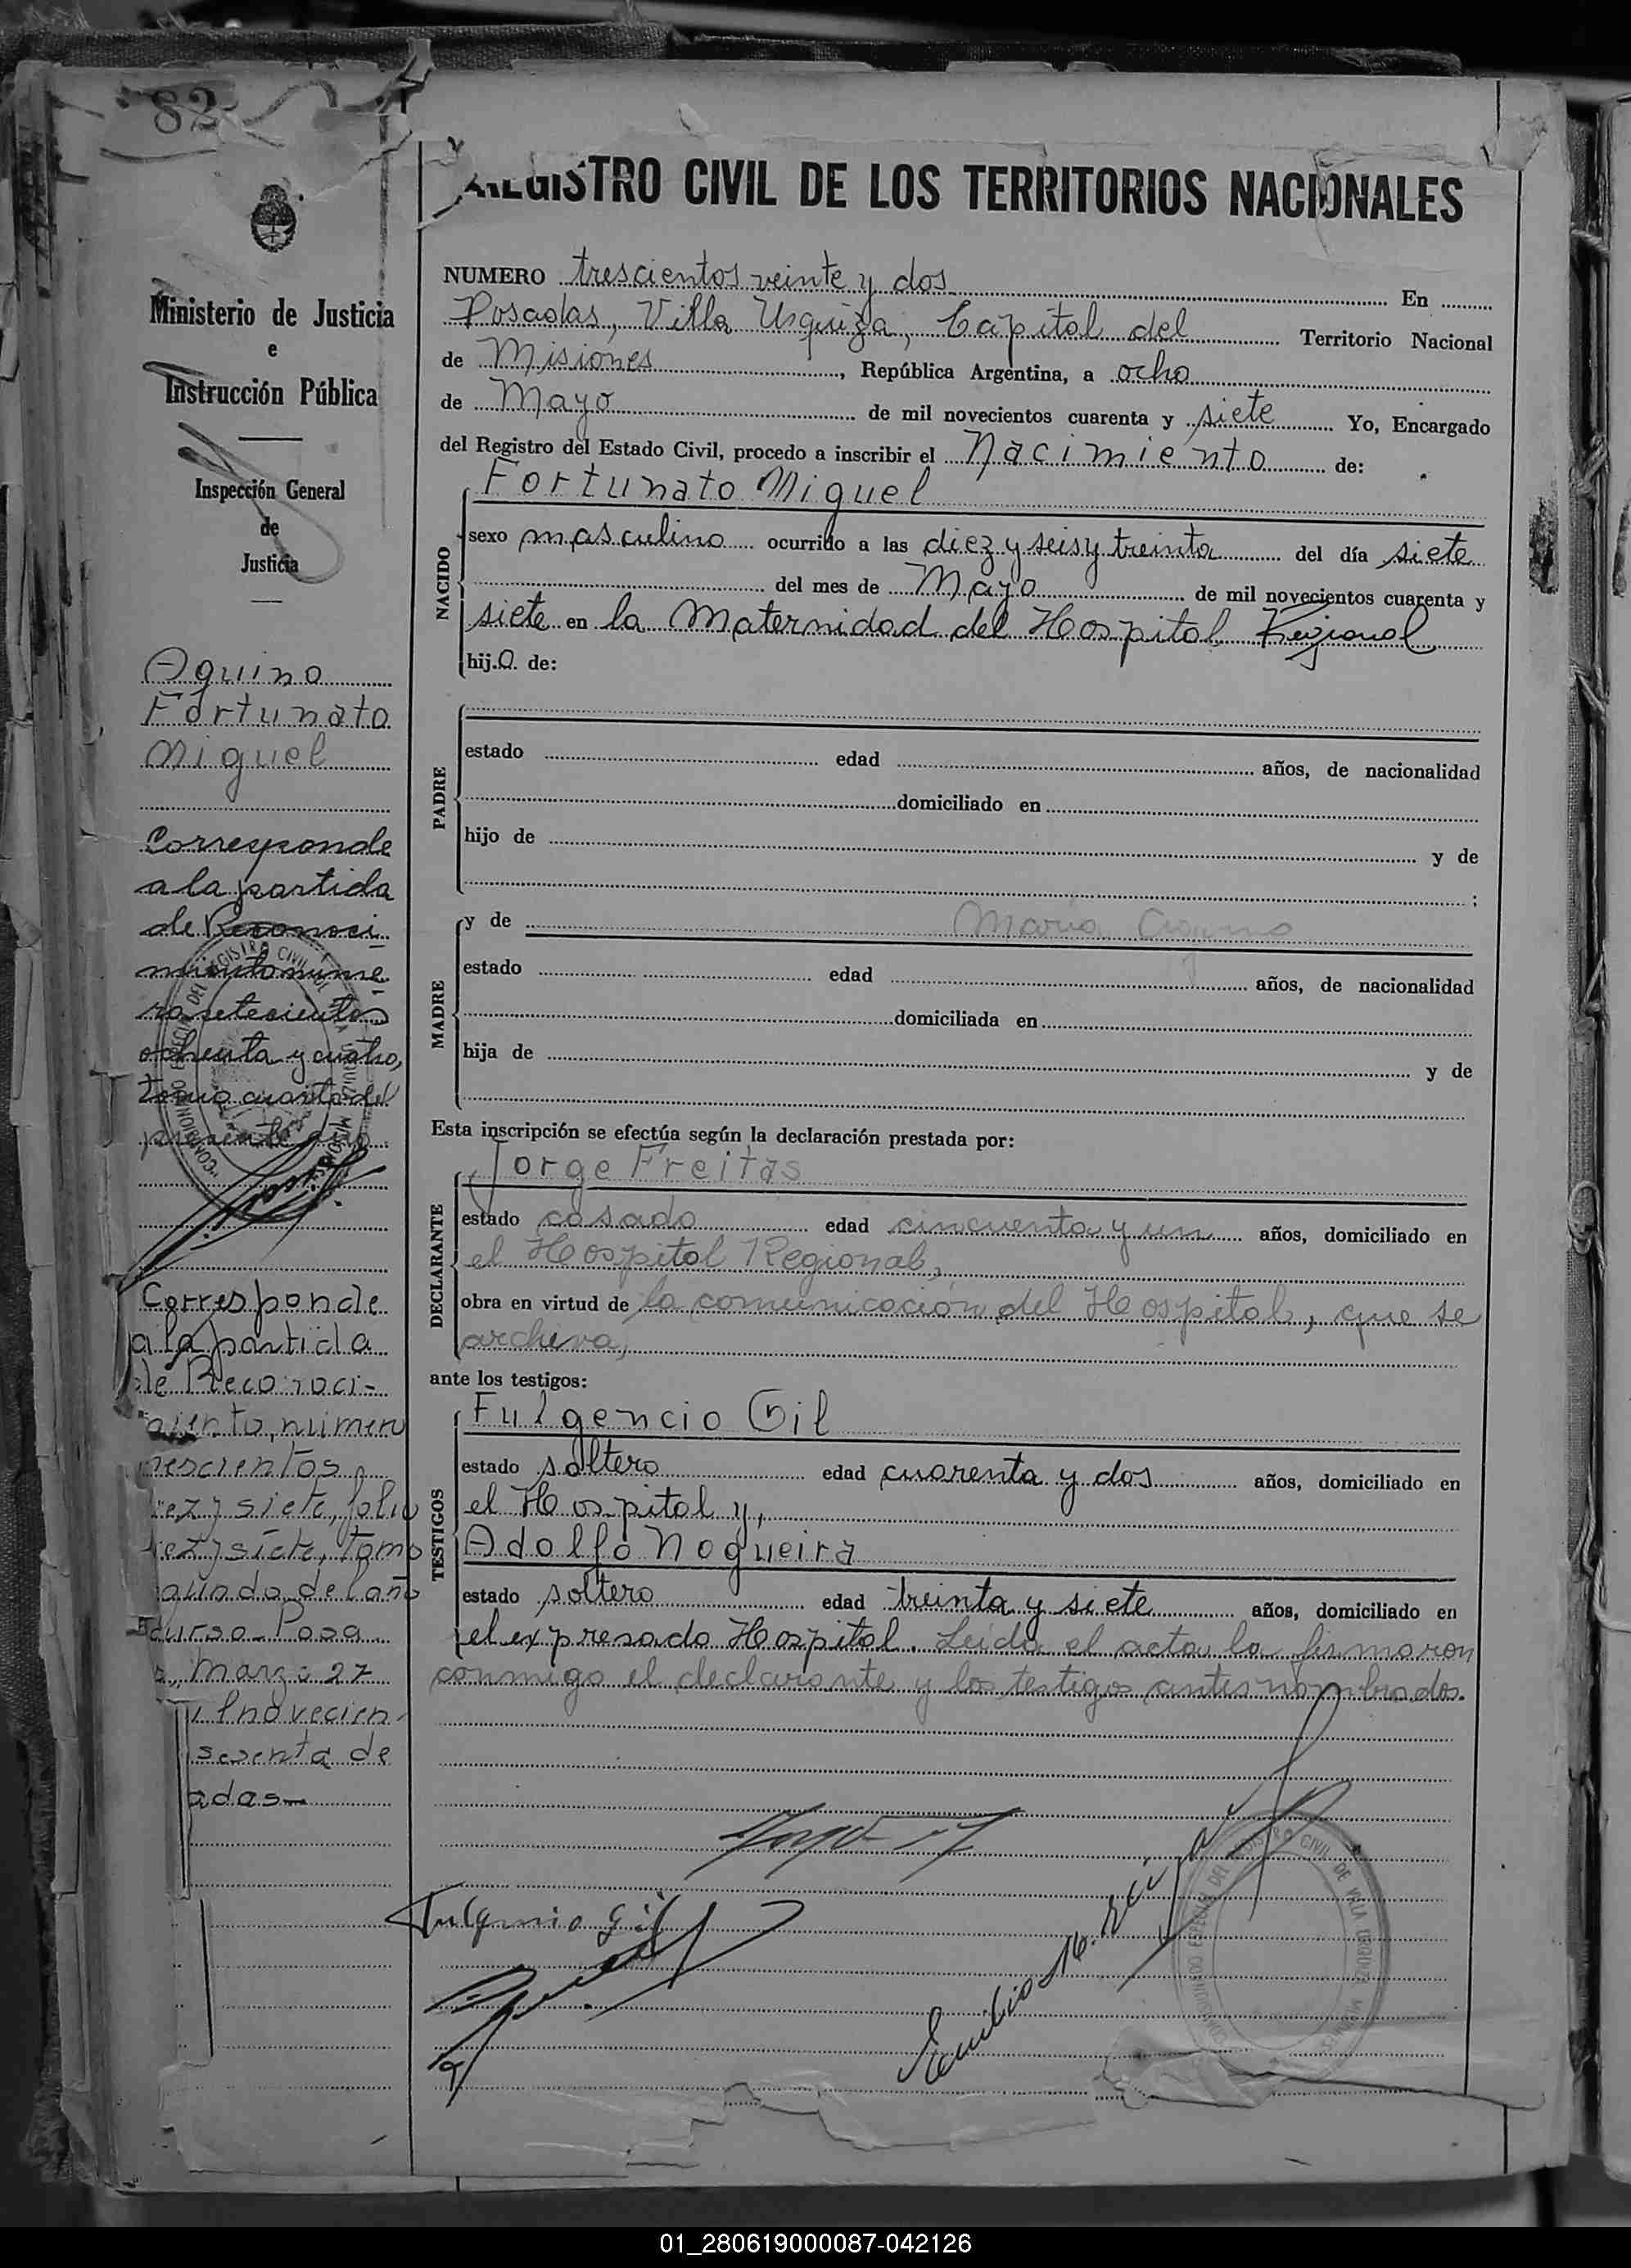 82
Ministerio de Justicia
e
Instrucción Pública
Inspección General
de
Justicia
Aquino
Fortunato
Miguel
Corresponde
a la partida
de Reconoci
miento núme
ro setecientos
ochenta y cuatro,
tomo cuarto del
presente año
Corresponde
a la partida
de Reconoci-
miento, número
siete, folio
siete, tomo
del año
curso- Posa
Marzo 27
novecien
sesenta de
adas-
REGISTRO CIVIL DE LOS TERRITORIOS NACIONALES
NUMERO trescientos veinte y dos En
Posadas, Villa Urquiza, Capital del Territorio Nacional
de Misiones, República Argentina, a ocho
de Mayo de mil novecientos cuarenta y siete Yo, Encargado
del Registro del Estado Civil, procedo a inscribir el Nacimiento de:
NACIDO
Fortunato Miguel
sexo masculino ocurrido a las diez y seis y treinta del día siete
del mes de Mayo de mil novecientos cuarenta y
siete en la Maternidad del Hospital Regional
hijo de:
PADRE
estado edad años, de nacionalidad
domiciliado en
hijo de y de
;
MADRE
y de María Aquino
estado edad años, de nacionalidad
domiciliada en
hija de y de
Esta inscripción se efectúa según la declaración prestada por:
DECLARANTE
Jorge Freitas
estado casado edad cincuenta y un años, domiciliado en
el Hospital Regional,
obra en virtud de la comunicación del Hospital, que se
archiva,
ante los testigos:
TESTIGOS
Fulgencio Gil
estado soltero edad cuarenta y dos años, domiciliado en
el Hospital y,
Adolfo Nogueira
estado soltero edad treinta y siete años, domiciliado en
el expresado Hospital. Leida el acta la firmaron
conmigo el declarante y los testigos antes nombrados.
Fulgencio Gil
Emilio
REGISTRO CIVIL DE VILLA URQUIZA MISIONES
01_280619000087-042126